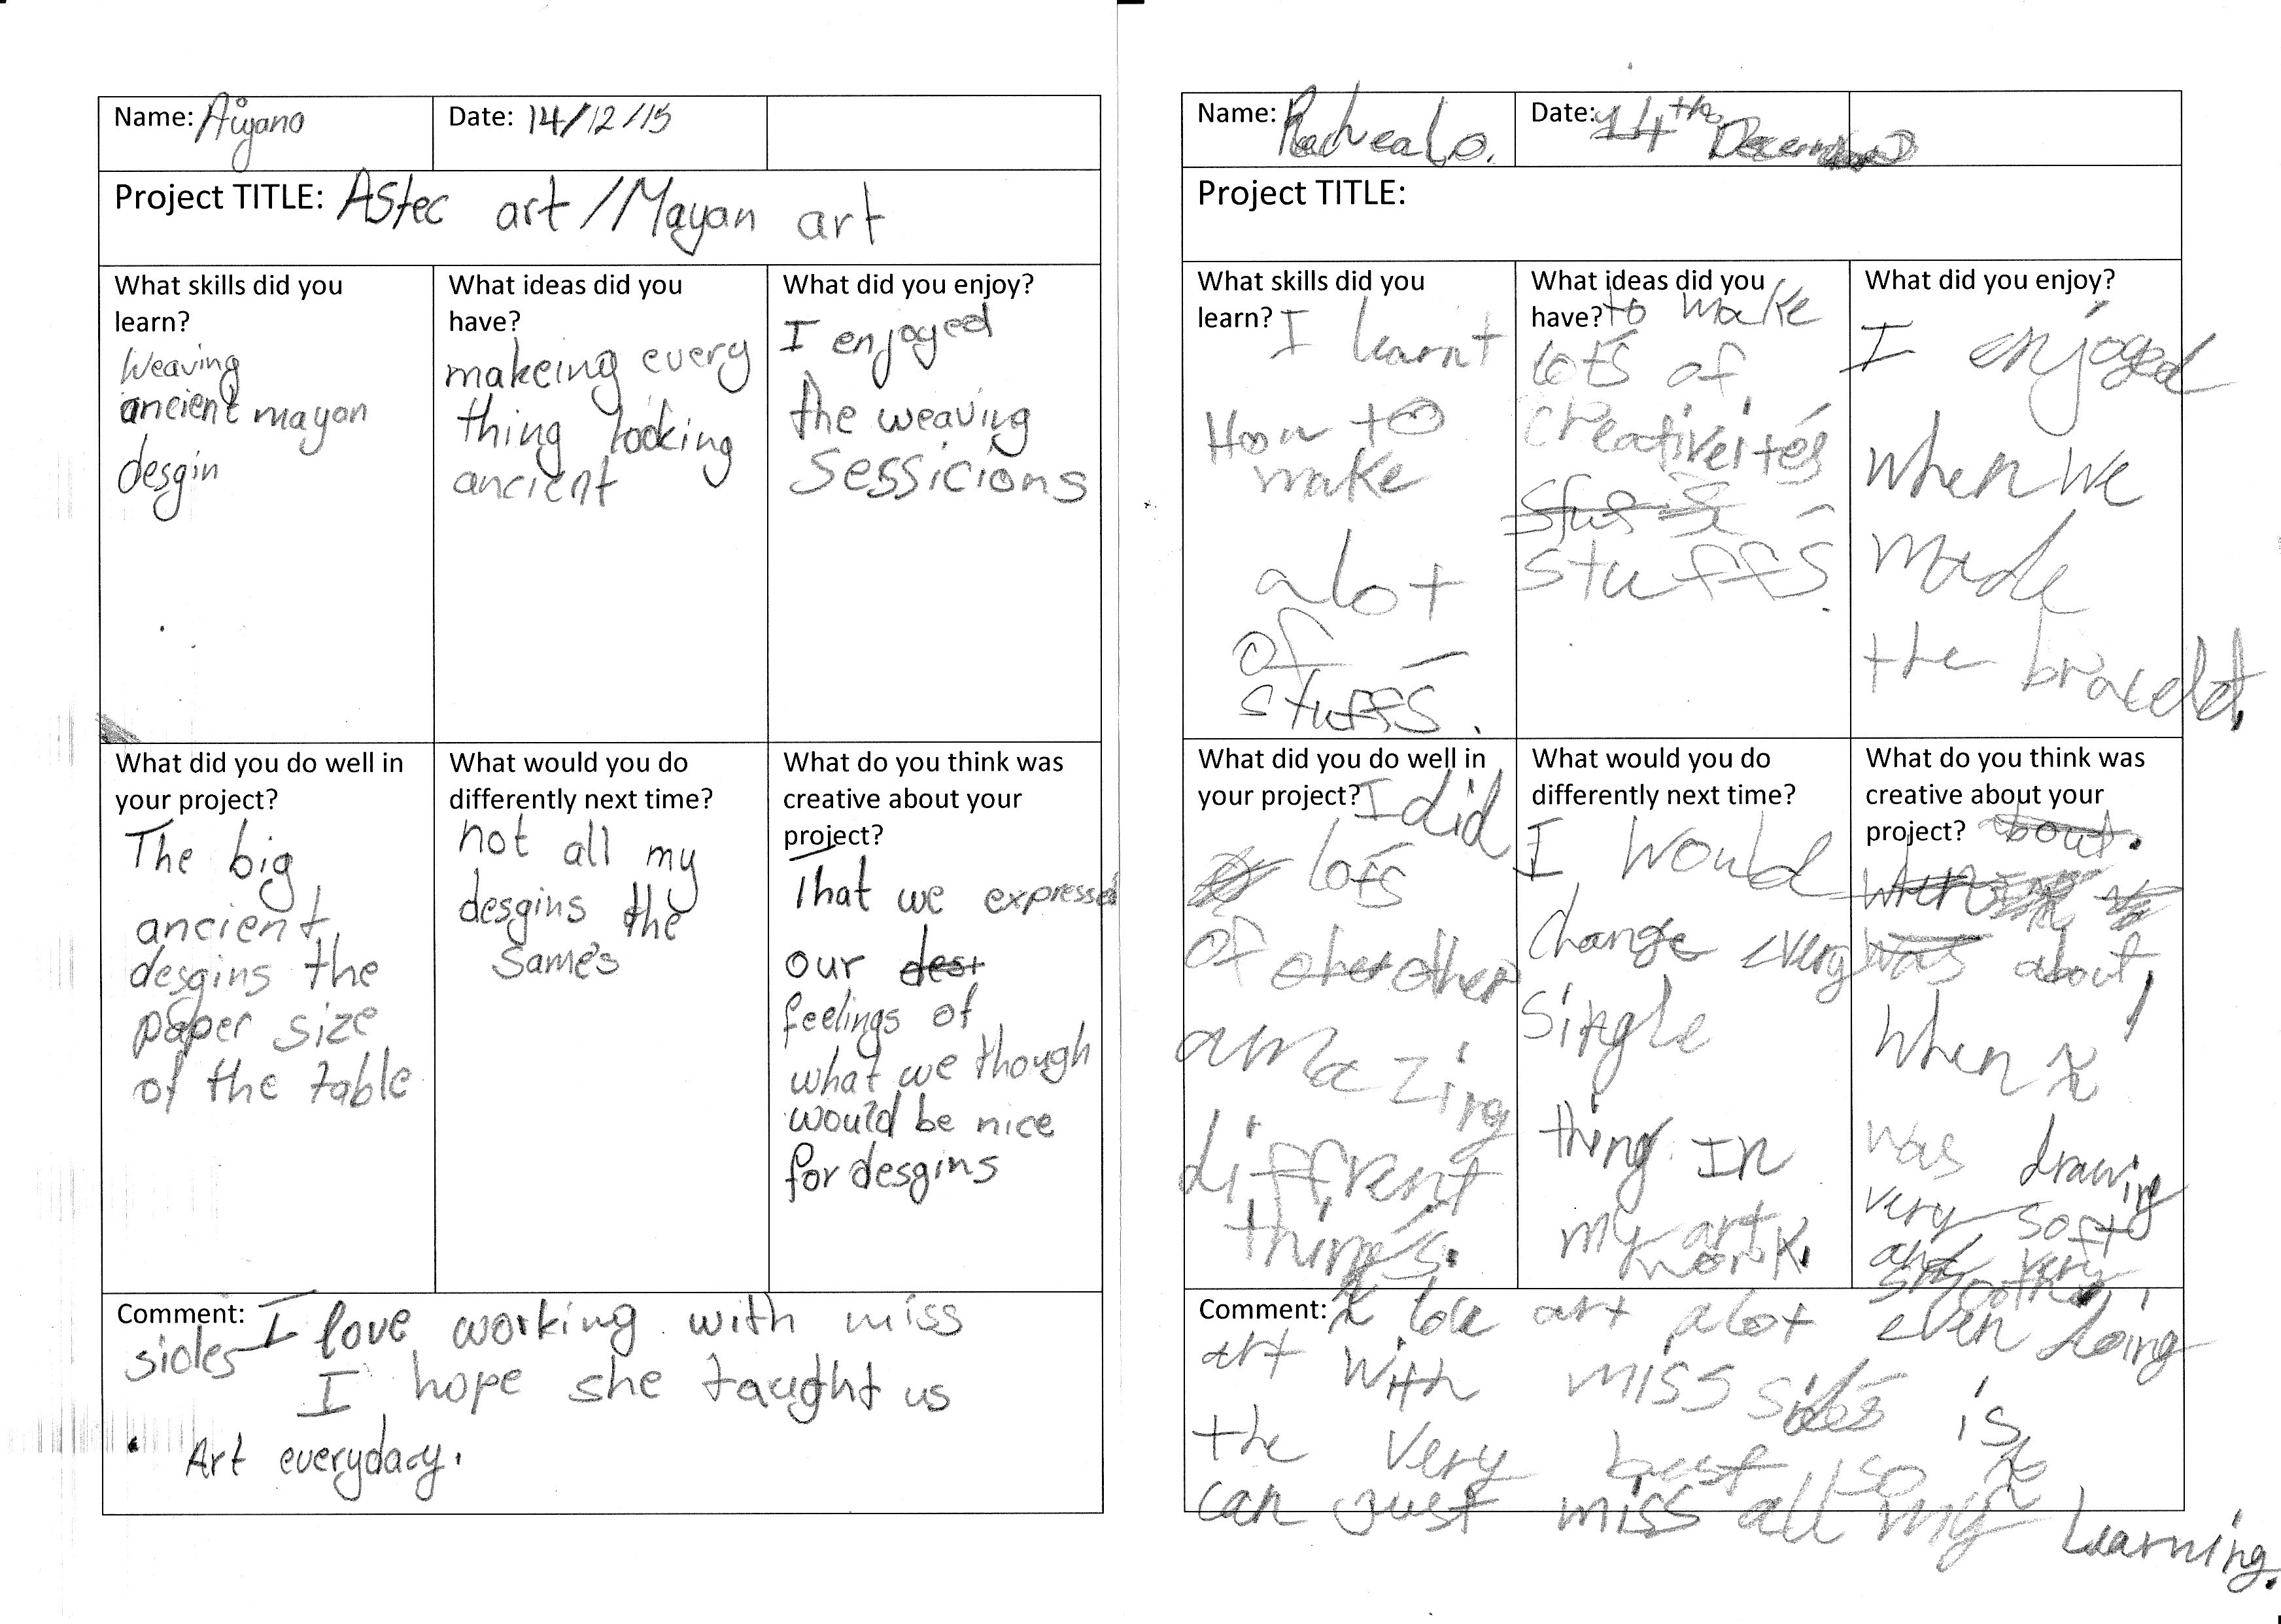 Name: Aiyana
Date: 14/12/15
Project TITLE: Astec art/Mayan art
What skills did you
learn?
Weaving
ancient mayan
desgin
What ideas did you
have?
makeing every
thing looking
ancient
What did you enjoy?
I enjoyed
the weaving
sessicions
What did you do well in
your project?
The big
ancient
desgins the
paper size
of the table
What would you do
differently next time?
not all my
desgins the
same's
What do you think was
creative about your
project?
That we expressed
our dest
feelings of
what we though
would be nice
for desgins
Comment: I love working with miss
sides I hope she taught us
Art everyday.
Name:
Date: 14th December
Project TITLE:
What skills did you
learn? I learnt
How to
make
alot
of
stuffs.
What ideas did you
have? to make
lots of
creativeites
stuffs.
What did you enjoy?
I enjoyed
when we
made
the bracelet.
What did you do well in
your project? I did
lots
of other
amazing
diffrent
things.
What would you do
differently next time?
I would
change every
single
thing in
my art
work.
What do you think was
creative about your
project? about.
when
was about
when I
was drawing
very soft
and very
smoothly
Comment: I love art alot even doing
art with miss sides is
the very best so I
can just miss all my learning.